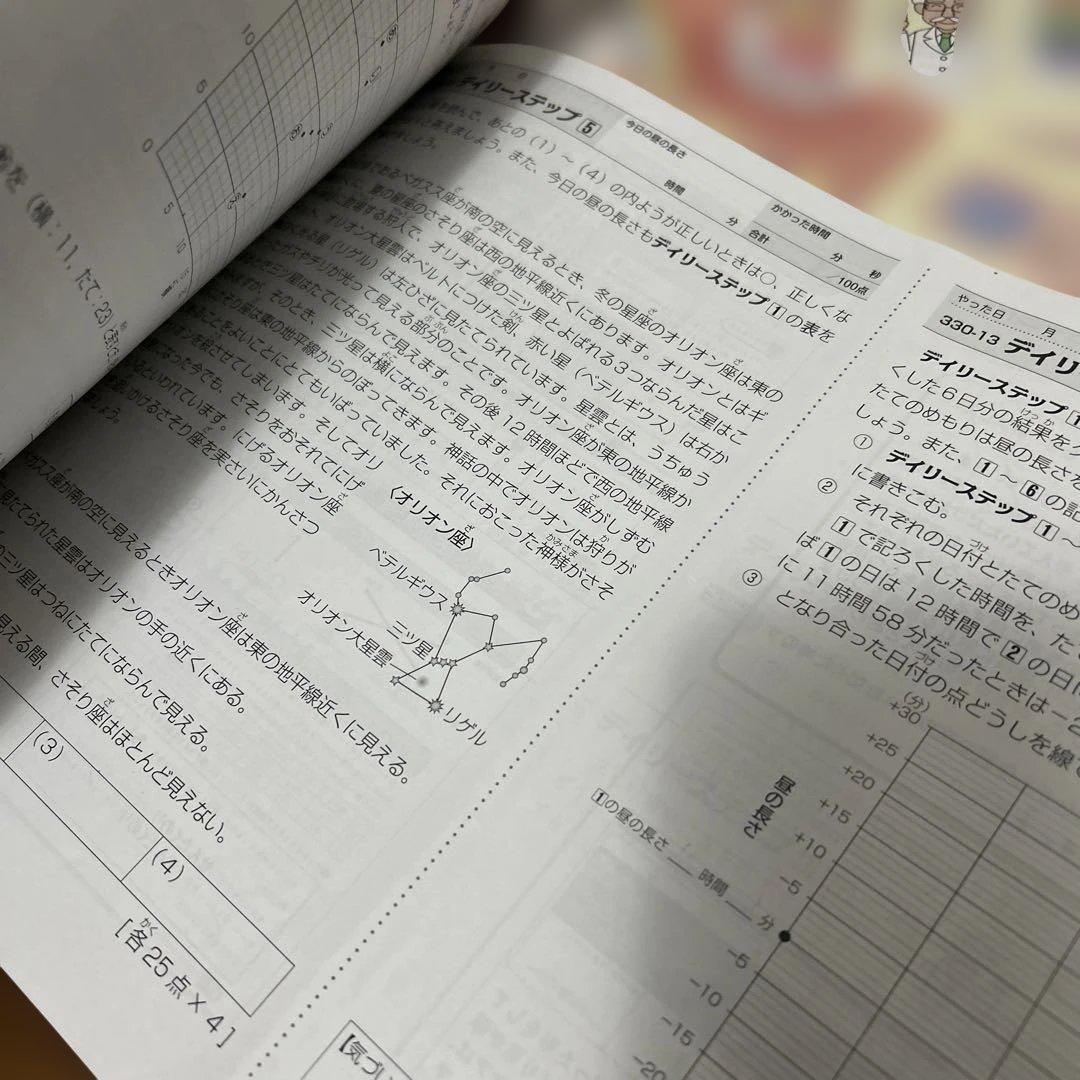 10
5
0
5
10
を (横:11, たて:23)
デイリーステップ 5
今日の昼の長さ
時間
分
合計
かかった時間
分 秒
/100点
あとの (1) ~ (4) の内ようが正しいときは○、正しくな
ましょう。また、今日の昼の長さもデイリーステップ 1 の表を
しょう。
であるペガスス座が南の空に見えるとき、冬の星座のオリオン座は東の
夏の星座のさそり座は西の地平線近くにあります。オリオンとはギ
に登場する狩人で、オリオン座の三ツ星とよばれる3つならんだ星はこ
オリオン大星雲はベルトにつけた剣、赤い星 (ベテルギウス) は右か
星 (リゲル) は左ひざに見たてられています。星雲とは、うちゅう
ガスやチリが光って見える部分のことです。オリオン座が東の地平線か
三ツ星はたてにならんで見えます。その後12時間ほどで西の地平線
ますが、そのとき、三ツ星は横にならんで見えます。オリオン座がしずむ
さそり座は東の地平線からのぼってきます。神話の中でオリオンは狩りが
ることをよいことにとてもいばっていました。それにおこった神様がさそ
オンを殺させてしまいます。そしてオリ
になった今でも、さそりをおそれてにげ
るといわれています。にげるオリオン座
かけるさそり座を実さいにかんさつ
しょう。
〈オリオン座〉
ベテルギウス
三ツ星
オリオン大星雲
リゲル
ガスス座が南の空に見えるときオリオン座は東の地平線近くに見える。
見たてられた星雲はオリオンの手の近くにある。
の三ツ星はつねにたてにならんで見える。
見える間、さそり座はほとんど見えない。
(3)
(4)
[各25点×4]
やった日 月
330-13 デイリ
デイリーステップ 1
くした6日分の結果を
たてのめもりは昼の長さを
しょう。また、1~6の記
① デイリーステップ 1 ~
に書きこむ。
② それぞれの日付とたてのめ
1 で記ろくした時間を、た
ば 1 の日は12時間で 2 の日に
に11時間58分だったときは-2
③ となり合った日付の点どうしを線
(分)
+30
+25
+20
+15
+10
-5
-5
-10
-15
-20
昼の長さ
1の昼の長さ
時間
分
【気づい